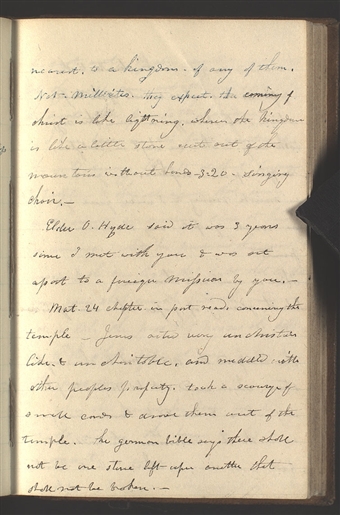 nearest, is a kingdom. if any of them.
Not Millites. they expect the coming of
christ is like lightning, where the kingdom
is like a little stone cut out of the
mountain without hands - 3.20 - singing
choir. —
Elder O. Hyde said it was 3 years
since I met with you & was set
apart to a foreign mission by you. —
Mat. 24 chapter in part read, concerning the
temple — Jesus acted very unchristian
like. & uncharitable, and meddled with
other peoples property. took a scourge of
small cords & drove them out of the
temple. the german bible says there shall
not be one stone left upon another that
shall not be broken. —